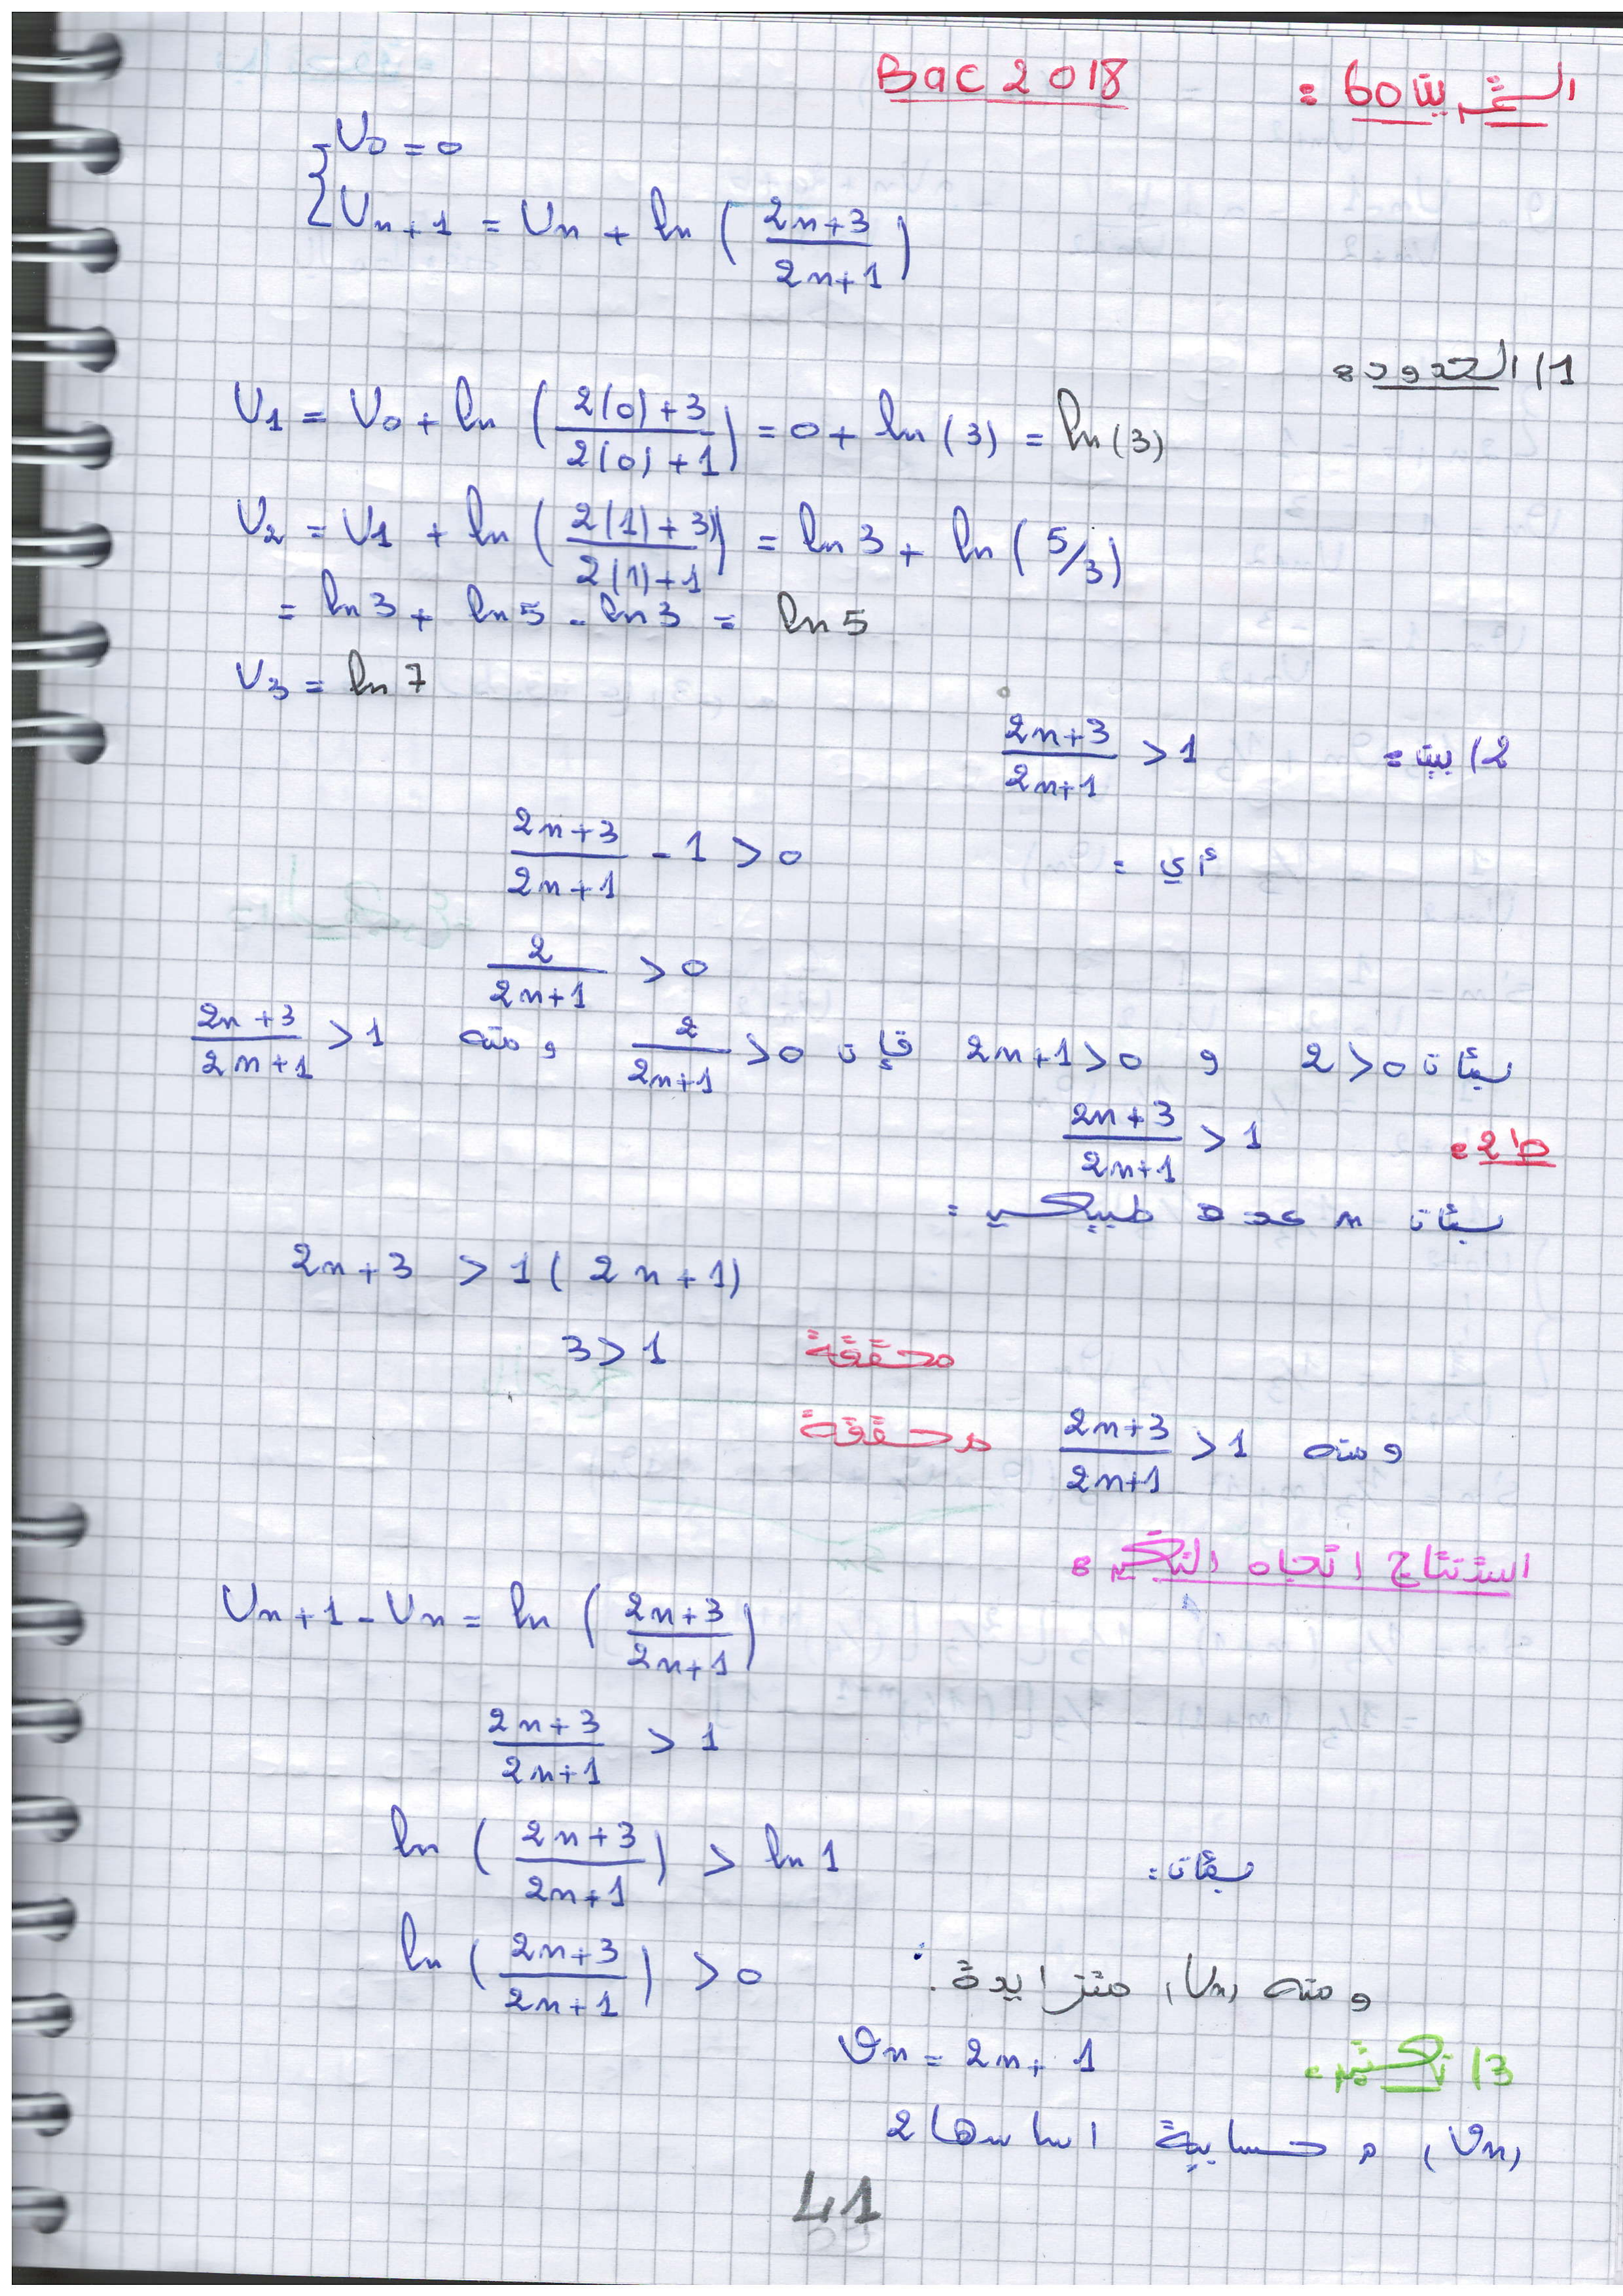 التمرين 60 : Bac 2018
U0 = 0
Un+1 = Un + ln ( (2n+3)/(2n+1) )
1) الحدود :
U1 = U0 + ln ( (2(0)+3)/(2(0)+1) ) = 0 + ln (3) = ln (3)
U2 = U1 + ln ( (2(1)+3)/(2(1)+1) ) = ln 3 + ln ( 5/3 )
= ln 3 + ln 5 - ln 3 = ln 5
U3 = ln 7
2) بين : (2n+3)/(2n+1) > 1
أي : (2n+3)/(2n+1) - 1 > 0
2/(2n+1) > 0
بمأن 2 > 0 و 2n+1 > 0 فإن 2/(2n+1) > 0 و منه (2n+3)/(2n+1) > 1
ط2 : (2n+3)/(2n+1) > 1
بمأن n عدد طبيعي :
2n+3 > 1 ( 2n+1)
3 > 1 محققة
و منه (2n+3)/(2n+1) > 1 محققة
استنتاج اتجاه التغير :
Un+1 - Un = ln ( (2n+3)/(2n+1) )
(2n+3)/(2n+1) > 1
بمأن : ln ( (2n+3)/(2n+1) ) > ln 1
ln ( (2n+3)/(2n+1) ) > 0
و منه (Un) متزايدة .
3) vn = 2n + 1
(vn) م حسابية اساسها 2
41